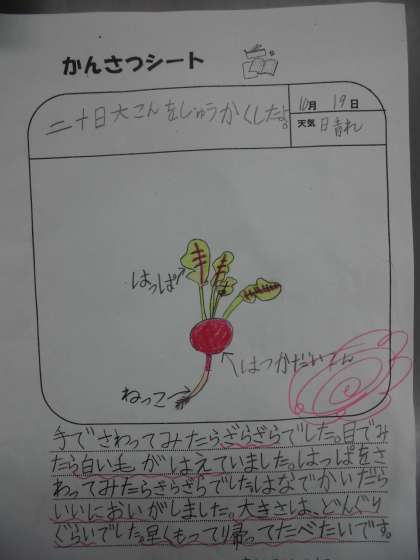 かんさつシート
二十日大こんをしゅうかくしたよ。
10月 19日
天気 日青れ
はっぱ
はつかだいこん
ねっこ
手でさわってみたらざらざらでした。目でみ
たら白い毛がはえていました。はっぱをさ
わってみたらざらざらでした。はなでかいだら
いいにおいがしました。大きさは、どんぐり
ぐらいでした。早くもって帰ってたべたいです。